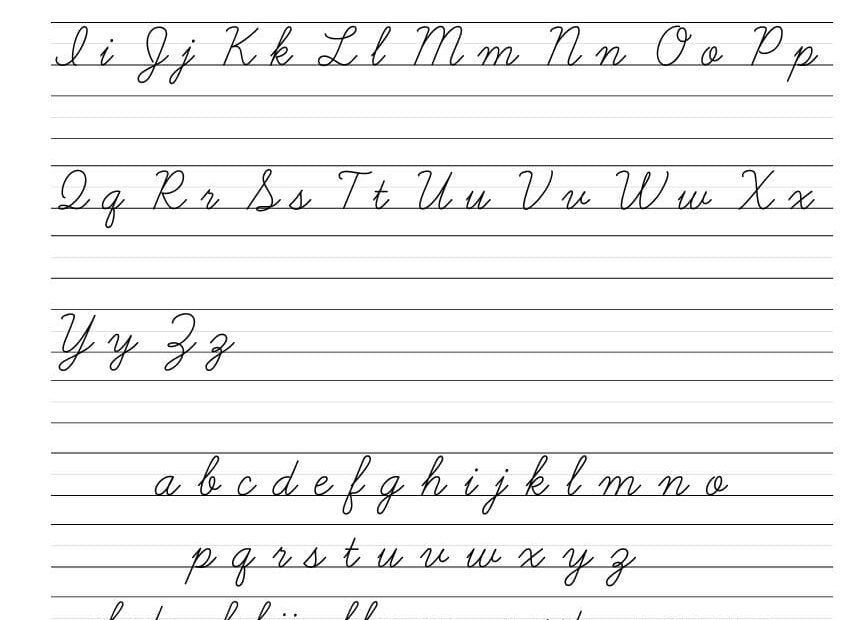 I i J j K k L l M m N n O o P p
Q q R r S s T t U u V v W w X x
Y y Z z
a b c d e f g h i j k l m n o
p q r s t u v w x y z